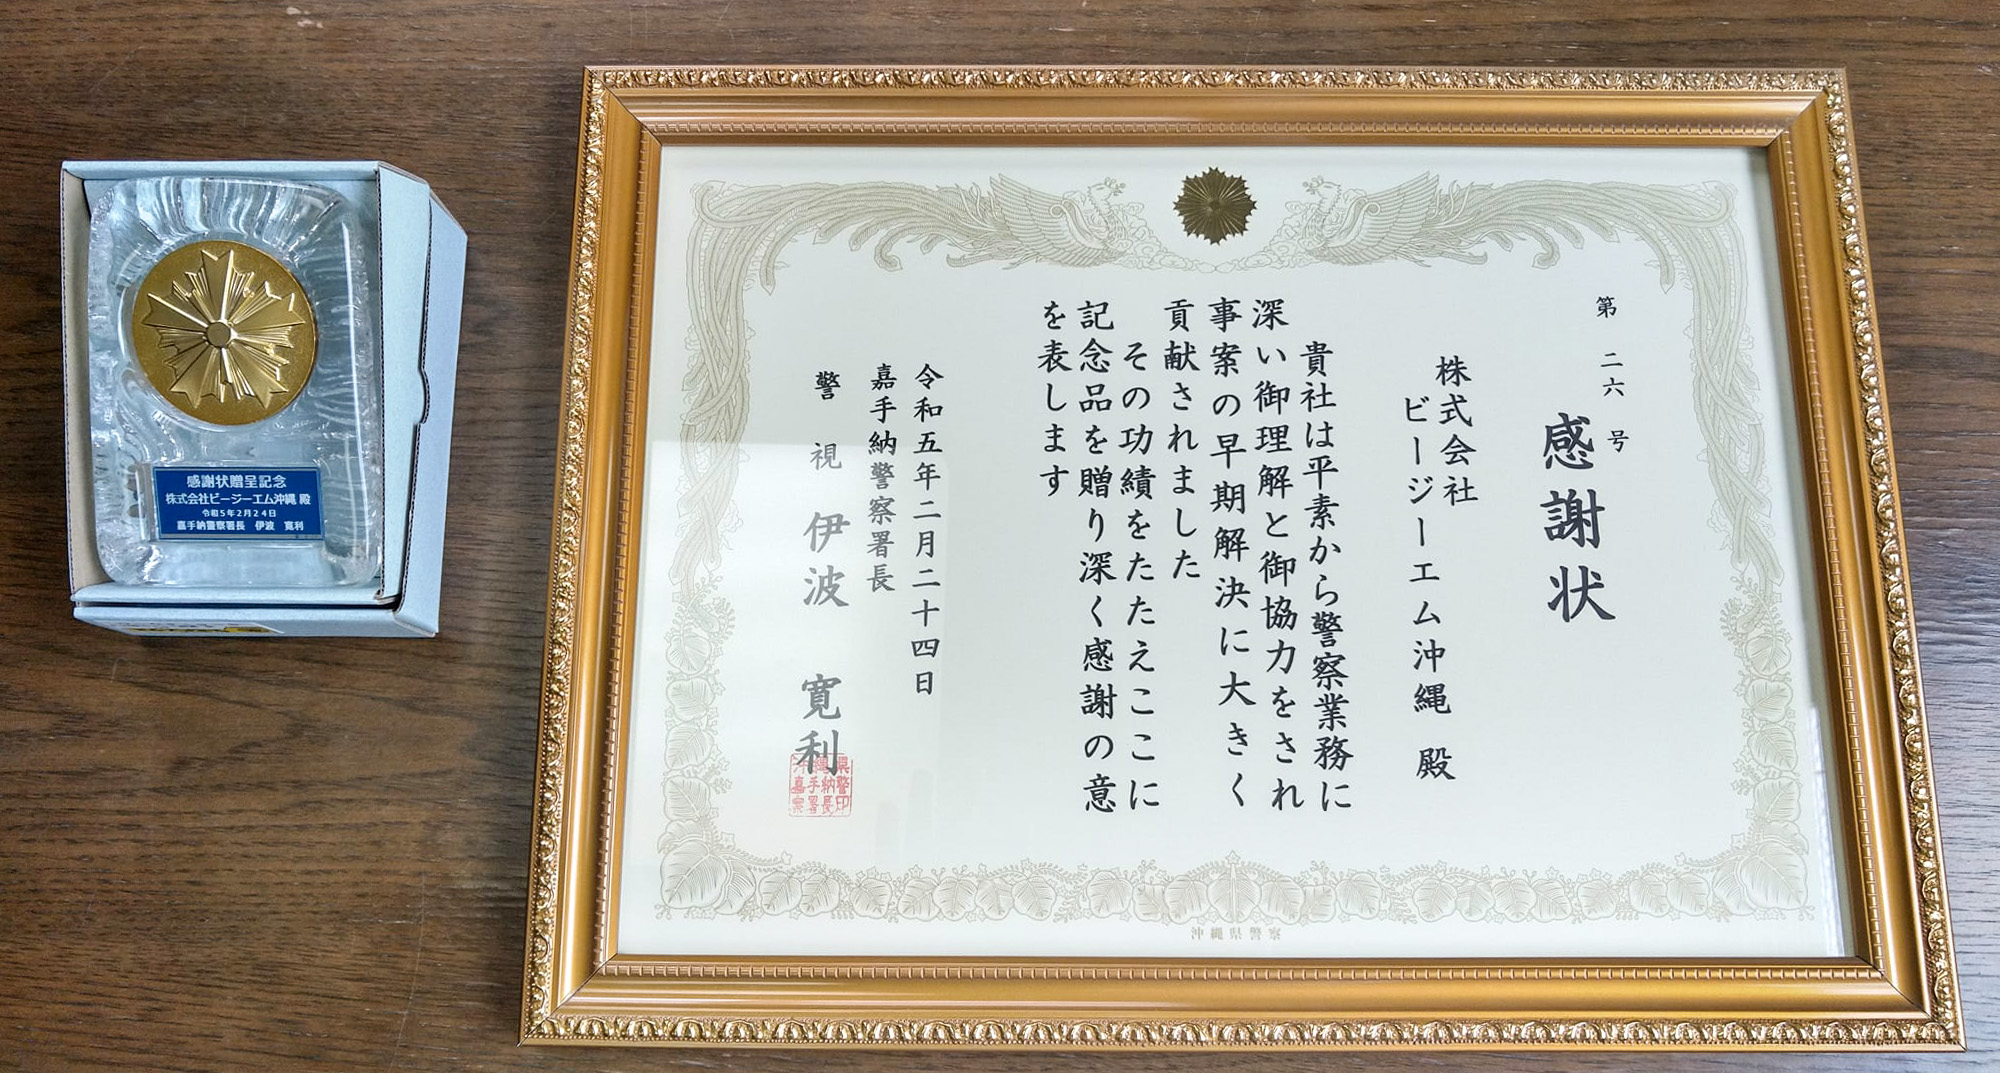 感謝状贈呈記念
株式会社ビージーエム沖縄 殿
令和5年2月24日
嘉手納警察署長 伊波 寛利
第二六号
感謝状
株式会社
ビージーエム沖縄 殿
貴社は平素から警察業務に
深い御理解と御協力をされ
事案の早期解決に大きく
貢献されました
その功績をたたえここに
記念品を贈り深く感謝の意
を表します
令和五年二月二十四日
嘉手納警察署長
警視 伊波 寛利
沖縄県警察